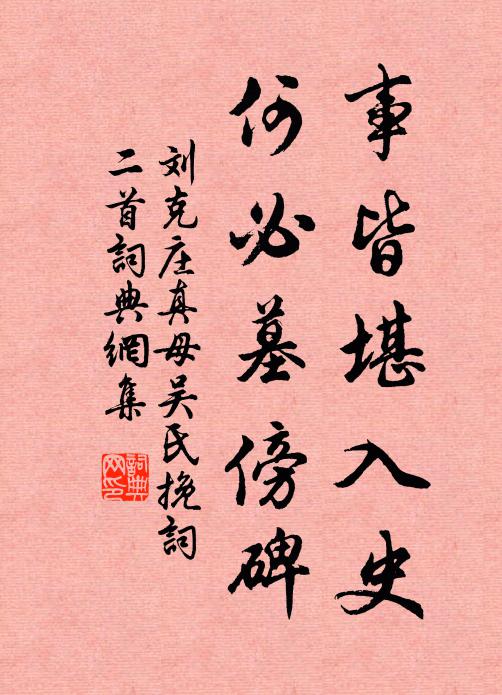 事皆堪入史
何必墓傍碑
刘克庄真母吴氏挽詞
二首詞典網集
詞典網印